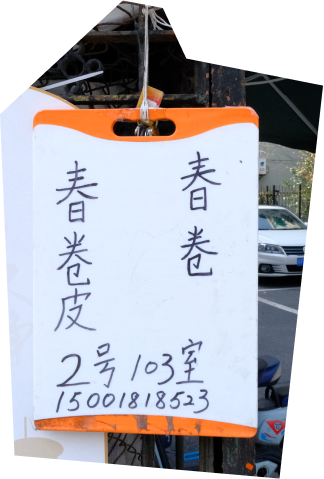 春卷
春卷皮
2号103室
15001818523